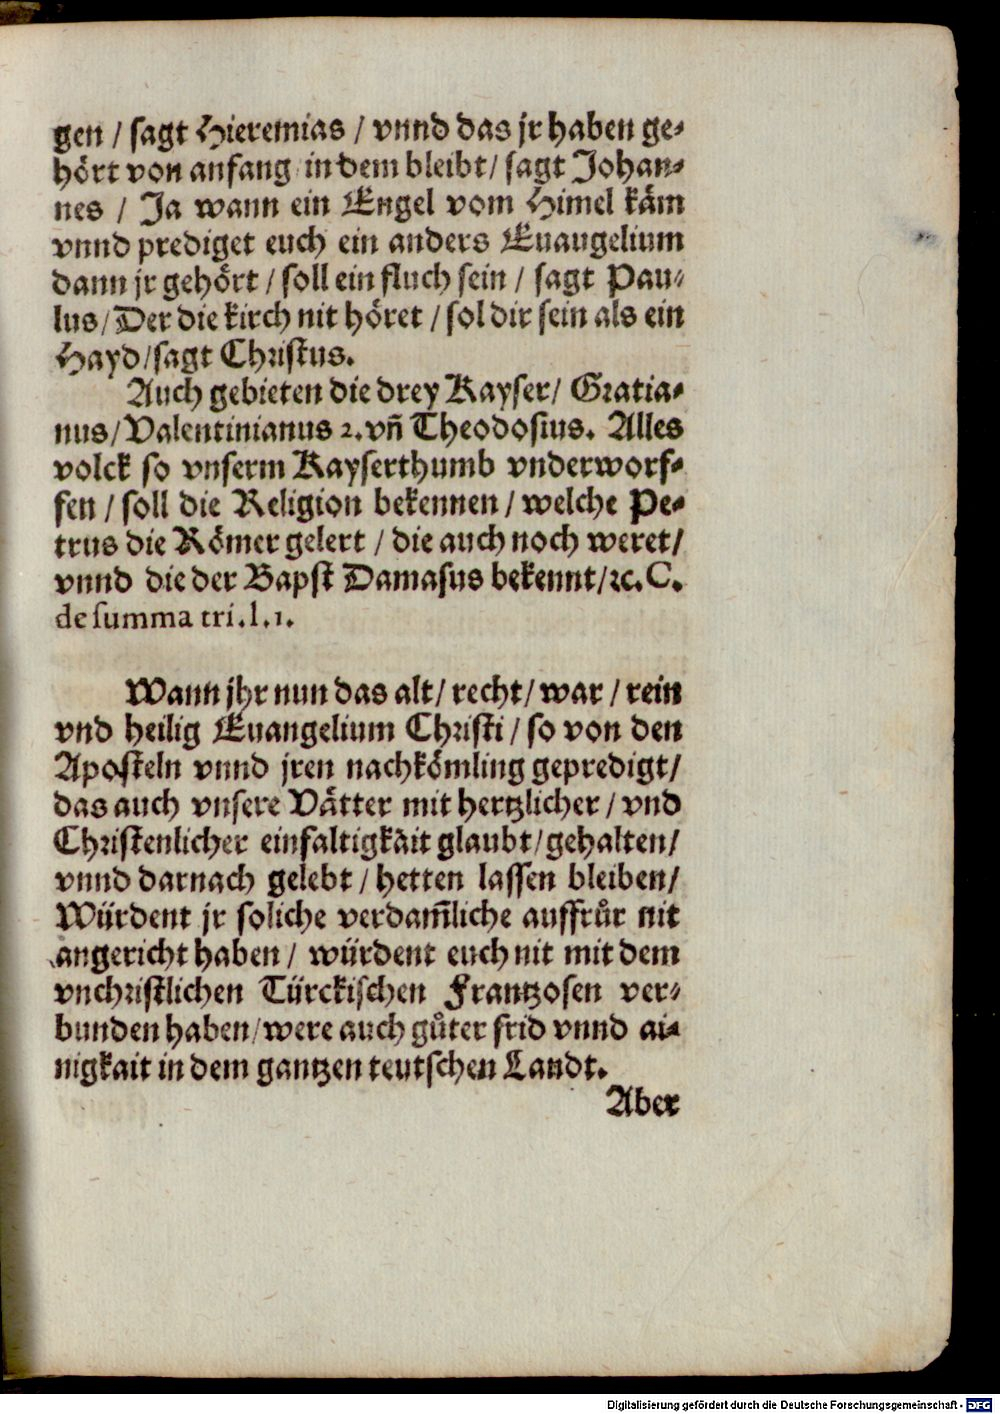 gen / sagt Hieremias / vnnd das jr haben ge-
hört von anfang in dem bleibt / sagt Johan-
nes / Ja wann ein Engel vom Himel käm
vnnd prediget euch ein anders Euaugelium
dann jr gehört / soll ein fluch sein / sagt Pau-
lus / Der die kirch nit höret / sol dir sein als ein
Hayd / sagt Christus.
Auch gebieten die drey Kayser / Gratia-
nus / Valentinianus 2. vñ Theodosius. Alles
volck so vnserm Kayserthumb vnderworf-
fen / soll die Religion bekennen / welche Pe-
trus die Römer gelert / die auch noch weret /
vnnd die der Bapst Damasus bekennt / ꝛc. C.
de summa tri. l. 1.
Wann jhr nun das alt / recht / war / rein
vnd heilig Euangelium Christi / so von den
Aposteln vnnd jren nachkömling gepredigt /
das auch vnsere Vätter mit hertzlicher / vnd
Christenlicher einfaltigkäit glaubt / gehalten /
vnnd darnach gelebt / hetten lassen bleiben /
Würdent jr soliche verdam̃liche auffrůr nit
angericht haben / würdent euch nit mit dem
vnchristlichen Türckischen Frantzosen ver-
bunden haben / were auch gůter frid vnnd ai-
nigkait in dem gantzen teutschen Landt.
Aber
Digitalisierung gefördert durch die Deutsche Forschungsgemeinschaft - DFG